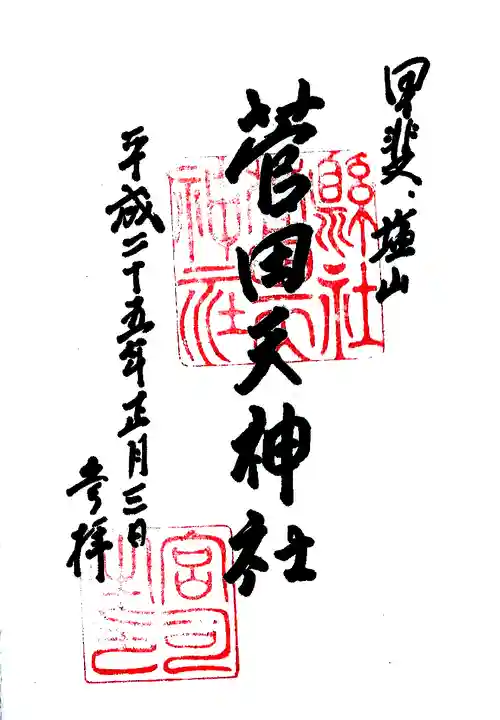 甲斐、塩山
菅田天神社
平成二十五年正月三日
奉拝
縣社
神社
宮司
之印